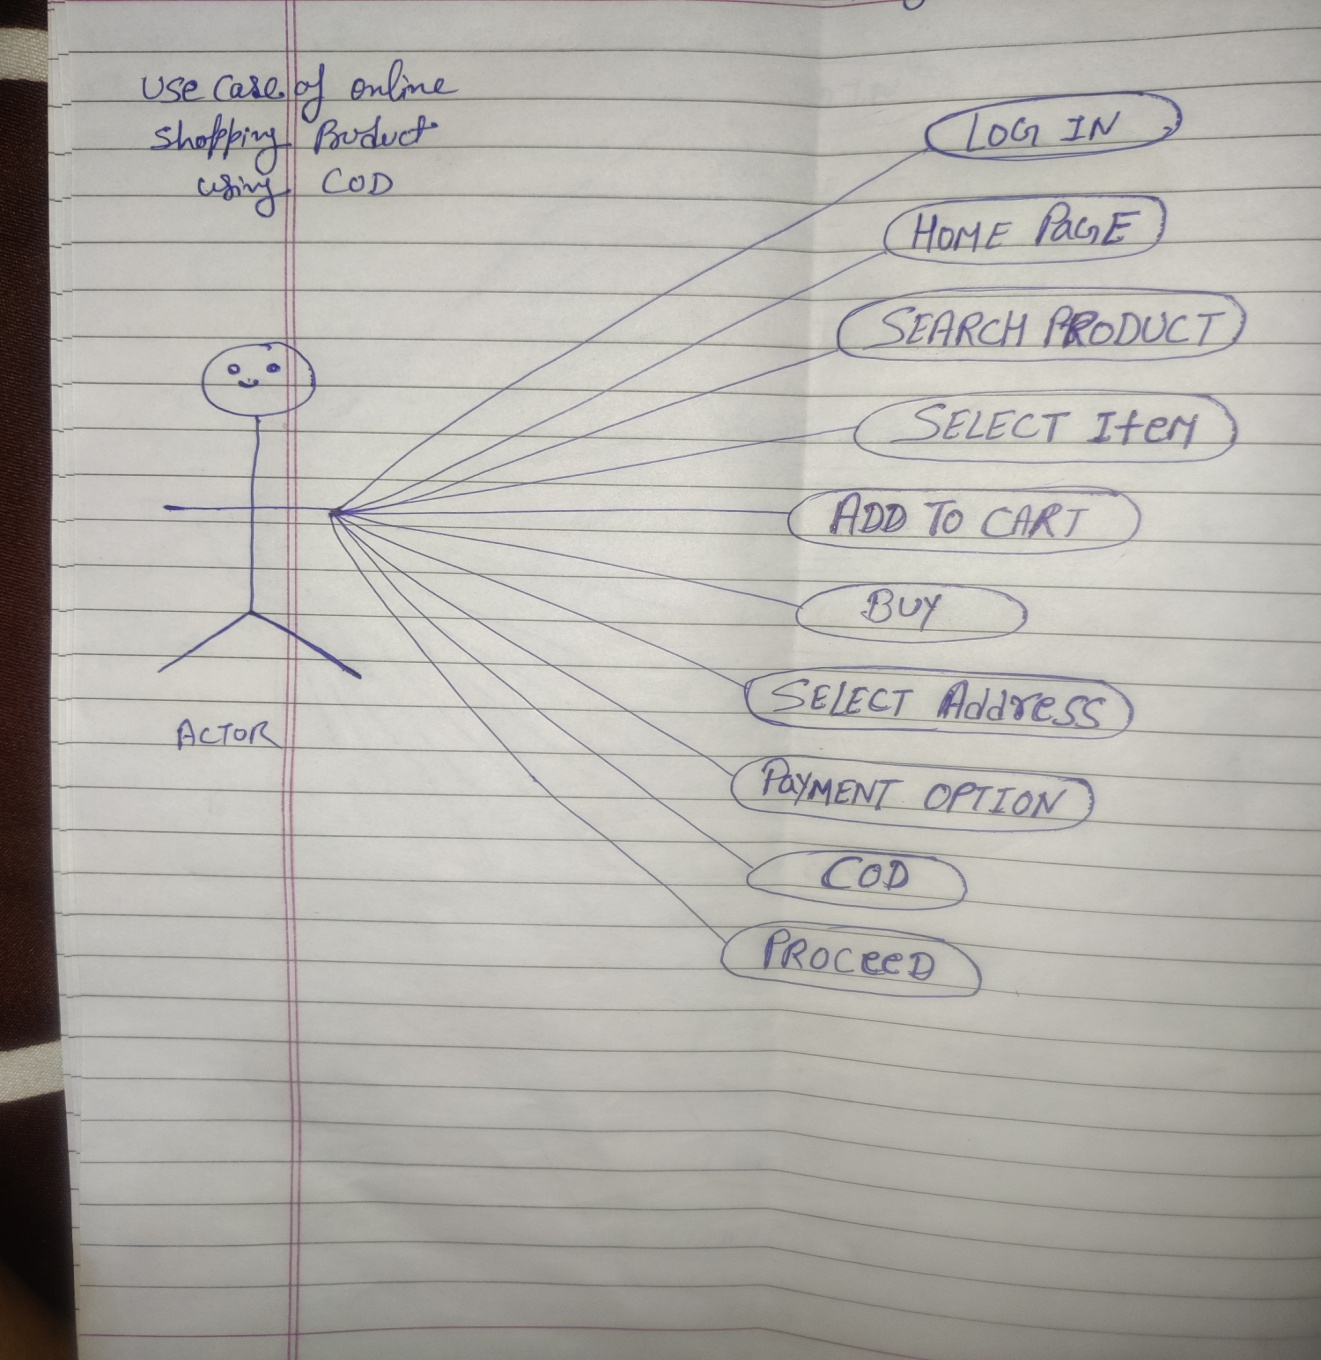 Use Case of online
Shopping Product
using COD
LOG IN
HOME PAGE
SEARCH PRODUCT
SELECT Item
ADD TO CART
BUY
SELECT Address
PAYMENT OPTION
COD
PROCeeD
ACTOR